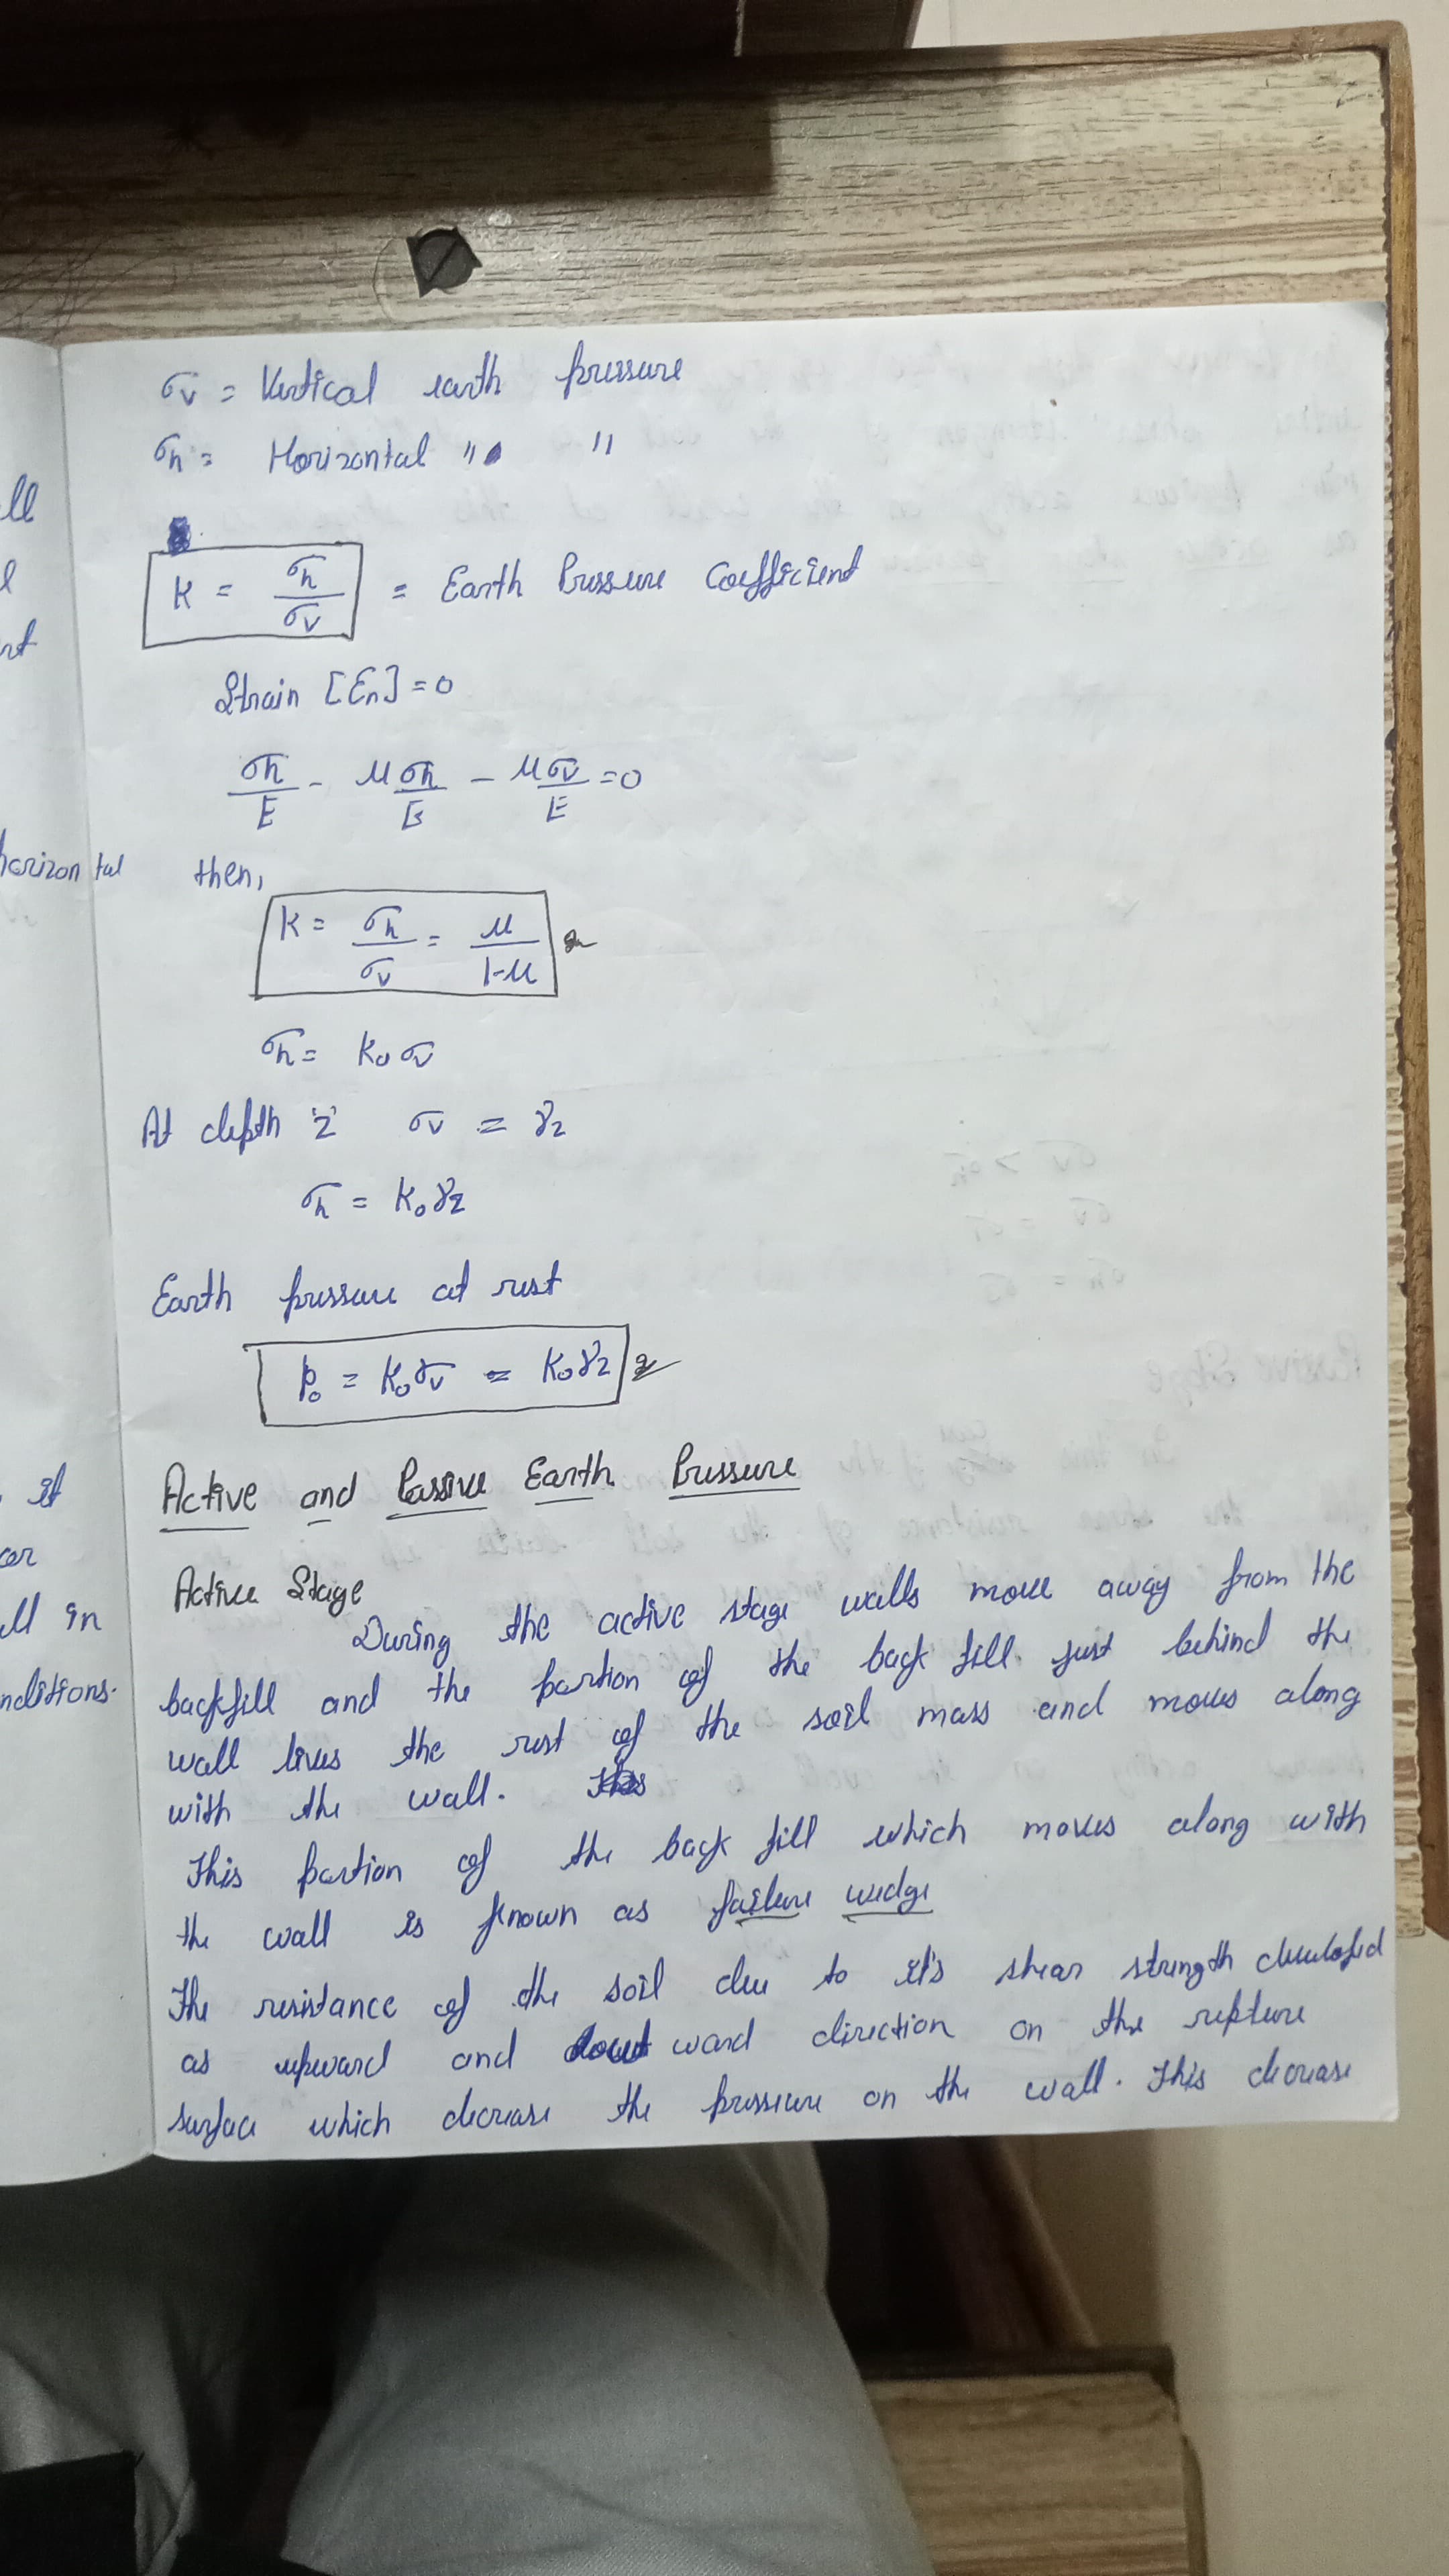 ll
rt
horizontal
it
ll in
nditions.
σv = Vertical earth pressure
σh = Horizontal " "
K = σh/σv = Earth Pressure Coefficient
Strain [Eh] = 0
σh/E - μσh/E - μσv/E = 0
then,
K = σh/σv = μ/1-μ
σh = K0 σv
At depth 'z' σv = γz
σh = K0γz
Earth pressure at rest
P0 = K0σv = K0γz
Active and Passive Earth Pressure
Active Stage
During the active stage walls move away from the
backfill and the portion of the back fill just behind the
wall lives the rest of the soil mass and moves along
with the wall.
This portion of the back fill which moves along with
the wall is known as failure wedge
The resistance of the soil due to it's shear strength developed
as upward and outward direction on the rupture
surface which decrease the pressure on the wall. This decrease